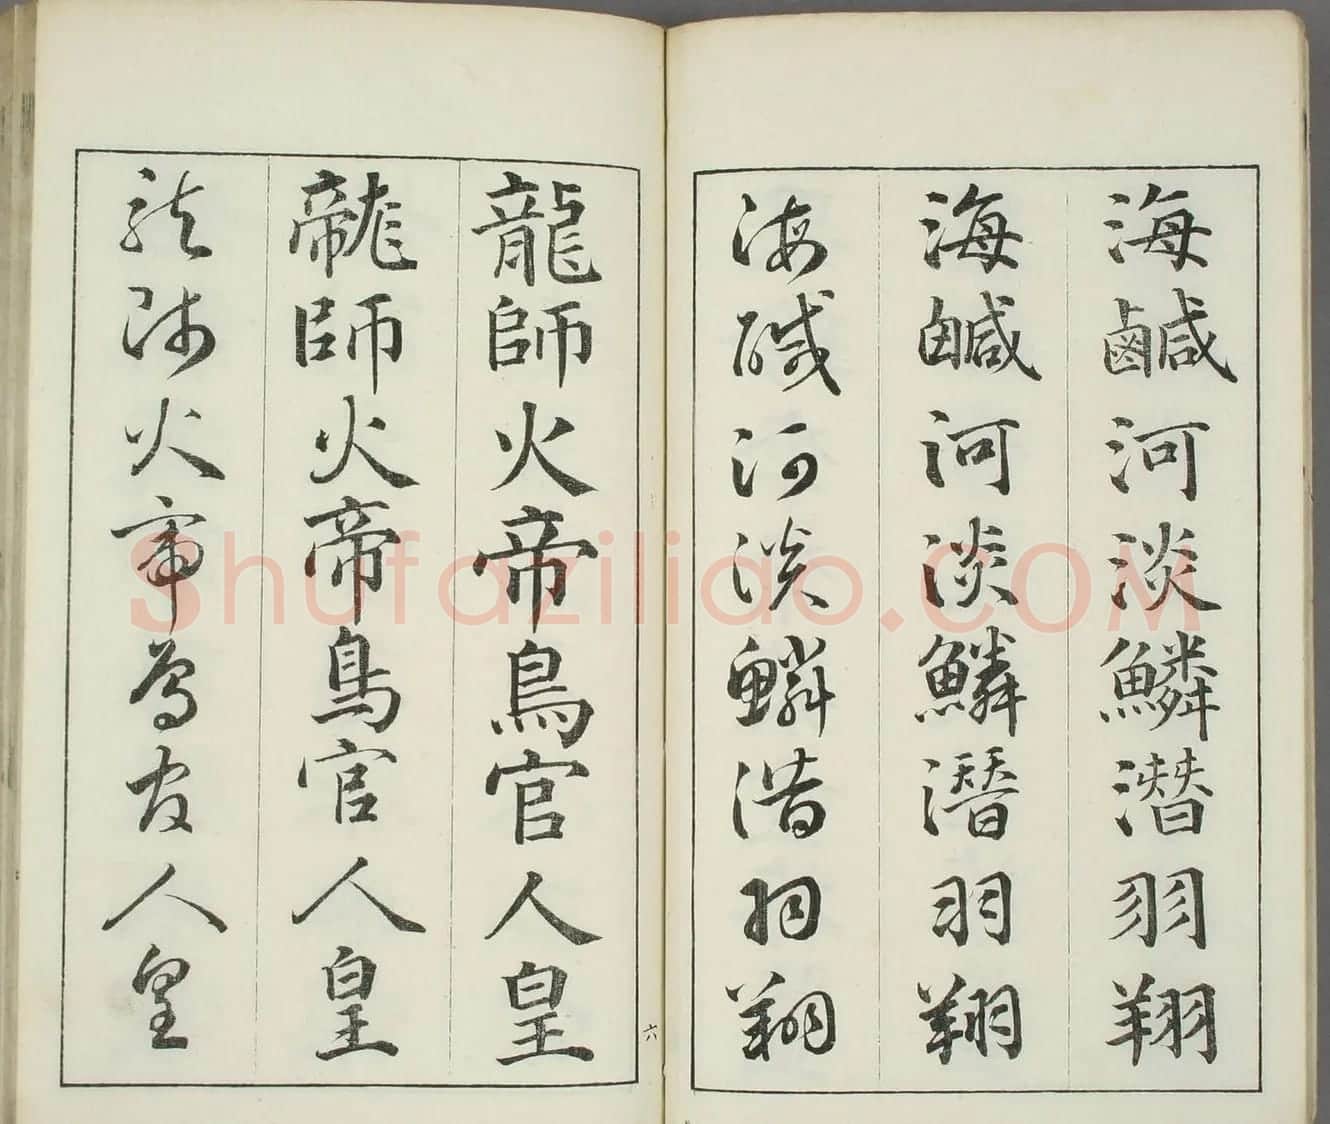 海鹹河淡鱗潛羽翔
海鹹河淡鱗潛羽翔
海鹹河淡鱗潛羽翔
六
龍師火帝鳥官人皇
龍師火帝鳥官人皇
龍師火帝鳥官人皇
Shufaziliao.COM